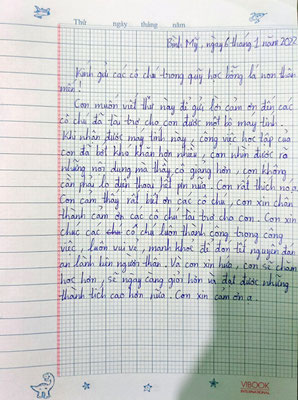 Thứ ngày tháng năm
Bình Mỹ, ngày 6 tháng 1 năm 2022
Kính gửi các cô chú trong quỹ học bổng lá non thân
mến!
Con muốn viết thư này để gửi lời cảm ơn đến các
cô chú đã tài trợ cho con được một bộ máy tính.
Khi nhận được máy tính này, công việc học tập của
con đã bớt khó khăn hơn nhiều, con nhìn được rõ
những nội dung mà thầy cô giảng hơn, con không
cần phải lo điện thoại hết pin nữa. Con rất thích nó ạ.
Con cảm thấy rất biết ơn các cô chú, con xin chân
thành cảm ơn các cô chú tài trợ cho con. Con xin
chúc các cô chú luôn thành công trong công
việc, luôn vui vẻ, mạnh khoẻ để đón tết nguyên đán
an lành bên người thân. Và con xin hứa, con sẽ chăm
học hơn, sẽ ngày càng giỏi hơn và đạt được những
thành tích cao hơn nữa. Con xin cảm ơn ạ.
VIBOOK